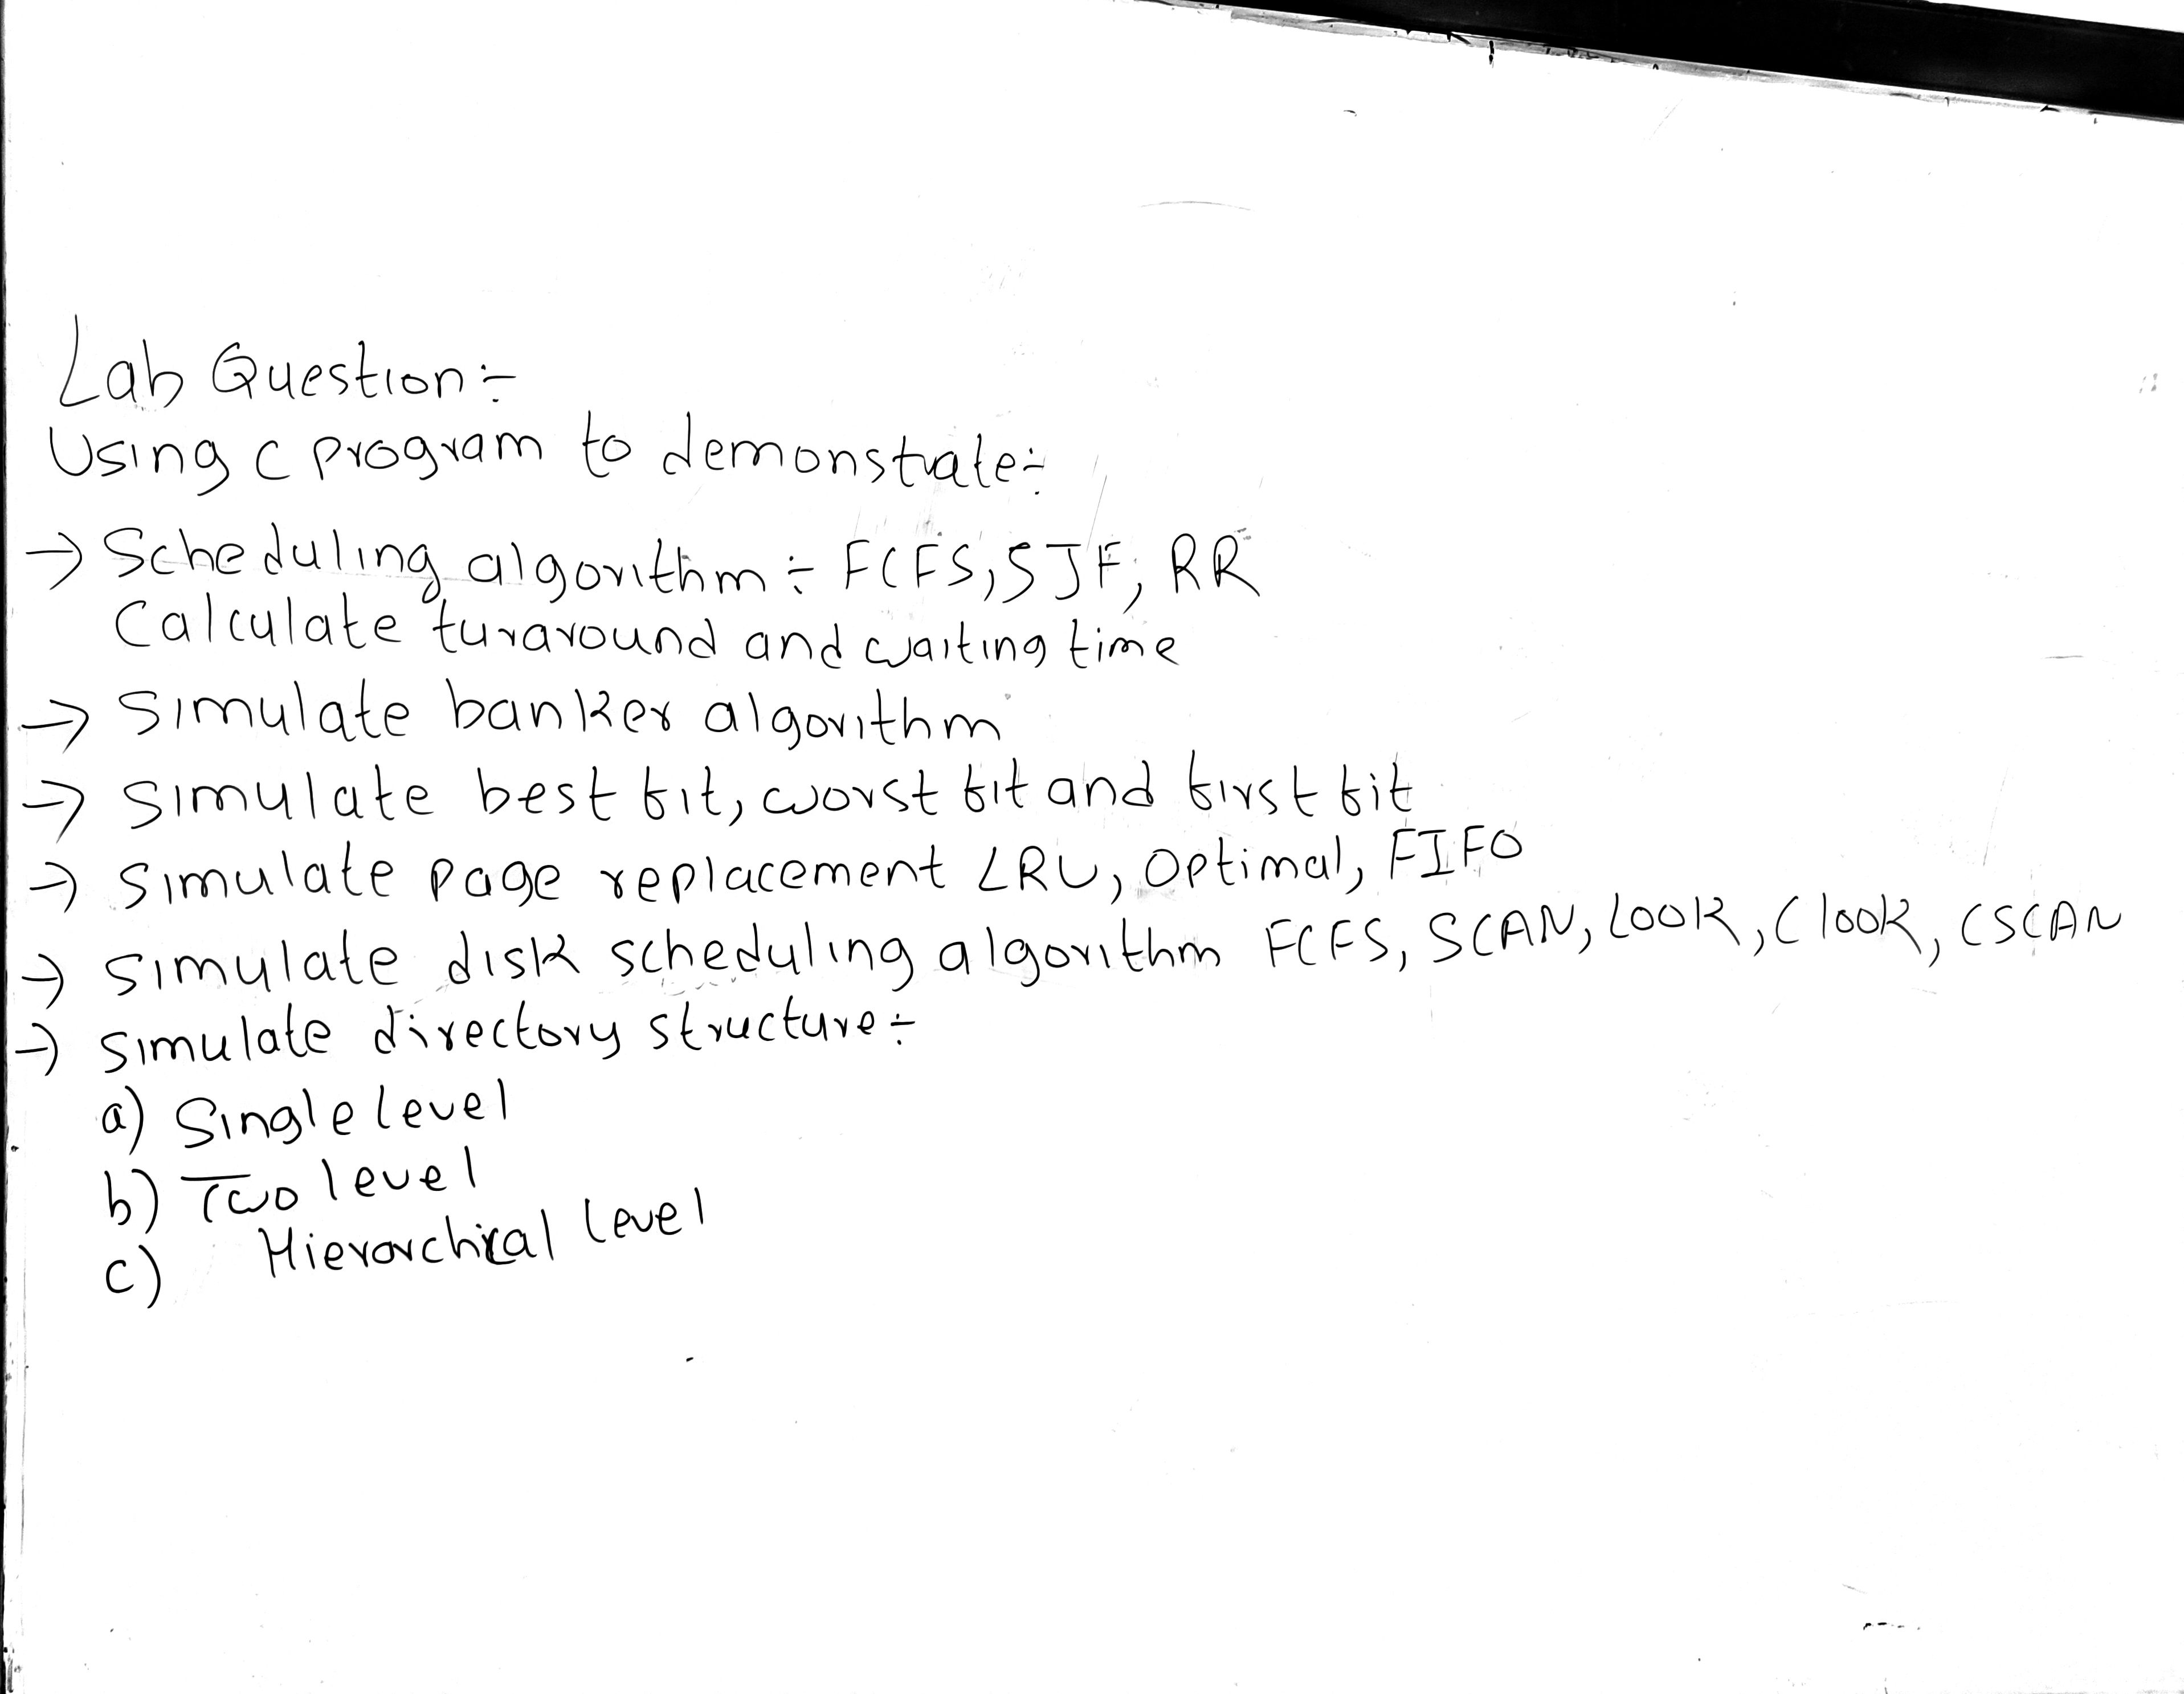 Lab Question:-
Using C program to demonstrate:-
→ Scheduling algorithm:- FCFS, SJF, RR
Calculate turaround and waiting time
→ Simulate banker algorithm
→ Simulate best fit, worst fit and first fit
→ Simulate page replacement LRU, Optimal, FIFO
→ Simulate disk scheduling algorithm FCFS, SCAN, LOOK, C look, CSCAN
→ Simulate directory structure:-
a) Single level
b) Two level
c) Hierarchical level